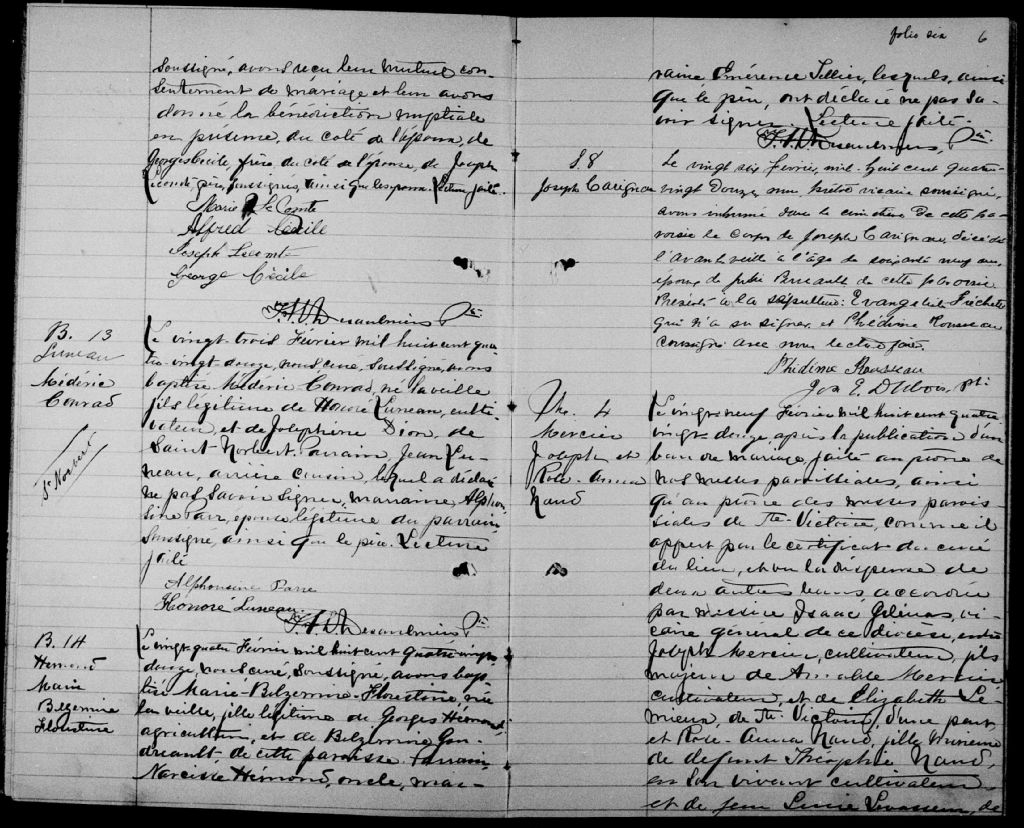 soussigné, avons reçu leur mutuel con-
sentement de mariage et leur avons
donné la bénédiction nuptiale
en présence, du coté de l'époux, de
Georges Cécile, frère, du coté de l'épouse, de Joseph
Lecomte, père, soussignés, ainsi que les époux. Lecture faite.
Marie Le Comte
Alfred Cécile
Joseph Lecomte
George Cécile
Desaulniers Ptre
B. 13
Luneau
Médéric
Conrad
St Norbert
Le vingt-trois Février mil huit cent qua-
tre-vingt-douze, nous curé, soussigné, avons
baptisé Médéric Conrad, né la veille
fils légitime de Honoré Luneau, culti-
vateur, et de Joséphine Dion, de
Saint-Norbert. Parrain, Jean Lu-
neau, arrière cousin, lequel a déclaré
ne pas savoir signer, marraine, Alphon-
sine Parr, épouse légitime du parrain
soussigné, ainsi que le père. Lecture
faite
Alphonsine Parre
Honoré Luneau
Desaulniers Ptre
B. 14
Hemond
Marie
Belzemine
Florestine
Le vingt-quatre Février mil huit cent quatre-vingt-
douze, nous curé, soussigné, avons bap-
tisé Marie-Belzemine-Florestine, née
la veille, fille légitime de Georges Hemond
agriculteur, et de Belzemine Gou-
dreault, de cette paroisse. Parrain,
Narcisse Hemond, oncle, mar-
folio six 6
raine Emérence Tellier, lesquels, ainsi
que le père, ont déclaré ne pas sa-
voir signer. Lecture faite.
Desaulniers, Ptre
S 8
Joseph Carignan
Le vingt six Février, mil-huit cent quatre-
vingt douze, nous prêtre vicaire soussigné,
avons inhumé dans le cimetière de cette pa-
roisse le corps de Joseph Carignan, décédé
l'avant veille à l'âge de soixante neuf ans
époux de Julie de cette paroisse
Présents à la sépulture: Evangeliste Fréchette
qui n'a su signer et Phédime Rousseau
soussigné avec nous lecture faite.
Phédime Rousseau
Jos E. Dubois, ptre
M. 4
Mercier
Joseph et
Rose-Anna
Naud
Le vingt-neuf Février mil huit cent quatre
vingt-douze, après la publication d'un
ban de mariage faite au prône de
nos messes paroissiales, ainsi
qu'au prône des messes parois-
siales de Ste-Victoire, comme il
appert par le certificat du curé
du lieu, et vu la dispense de
deux autres bans, accordée
par messire Isaac Gélinas, vi-
caire général de ce diocèse, entre
Joseph Mercier, cultivateur, fils
majeur de Amable Mercier
cultivateur, et de Elizabeth Lé-
mieux, de Ste-Victoire, d'une part,
et Rose-Anna Naud, fille mineure
de défunt Théophile Naud,
en son vivant cultivateur
et de feue Lucie Levasseur, de